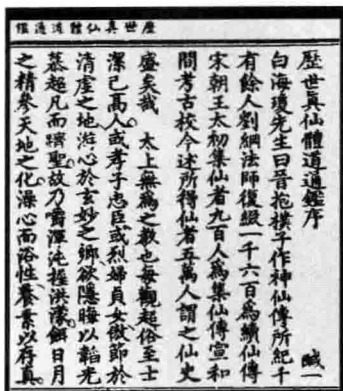 歷世真仙體道通鑑
歷世真仙體道通鑑序 鹹一
白海瓊先生曰晉抱樸子作神仙傳所紀千
有餘人劉綱法師復綴一千六百為續仙傳
宋朝王太初集仙者九百人為集仙傳宣和
間考古校今述所得仙者五萬人謂之仙史
盛矣哉 太上無為之教也每觀超俗至士
潔己高人或孝子忠臣或烈婦貞女儌節於
清虛之地游心於玄妙之鄉欲隱晦以韜光
慕超凡而躋聖故乃嚼渾沌握洪濛餌日月
之精參天地之化澡心而浴性養素以存真